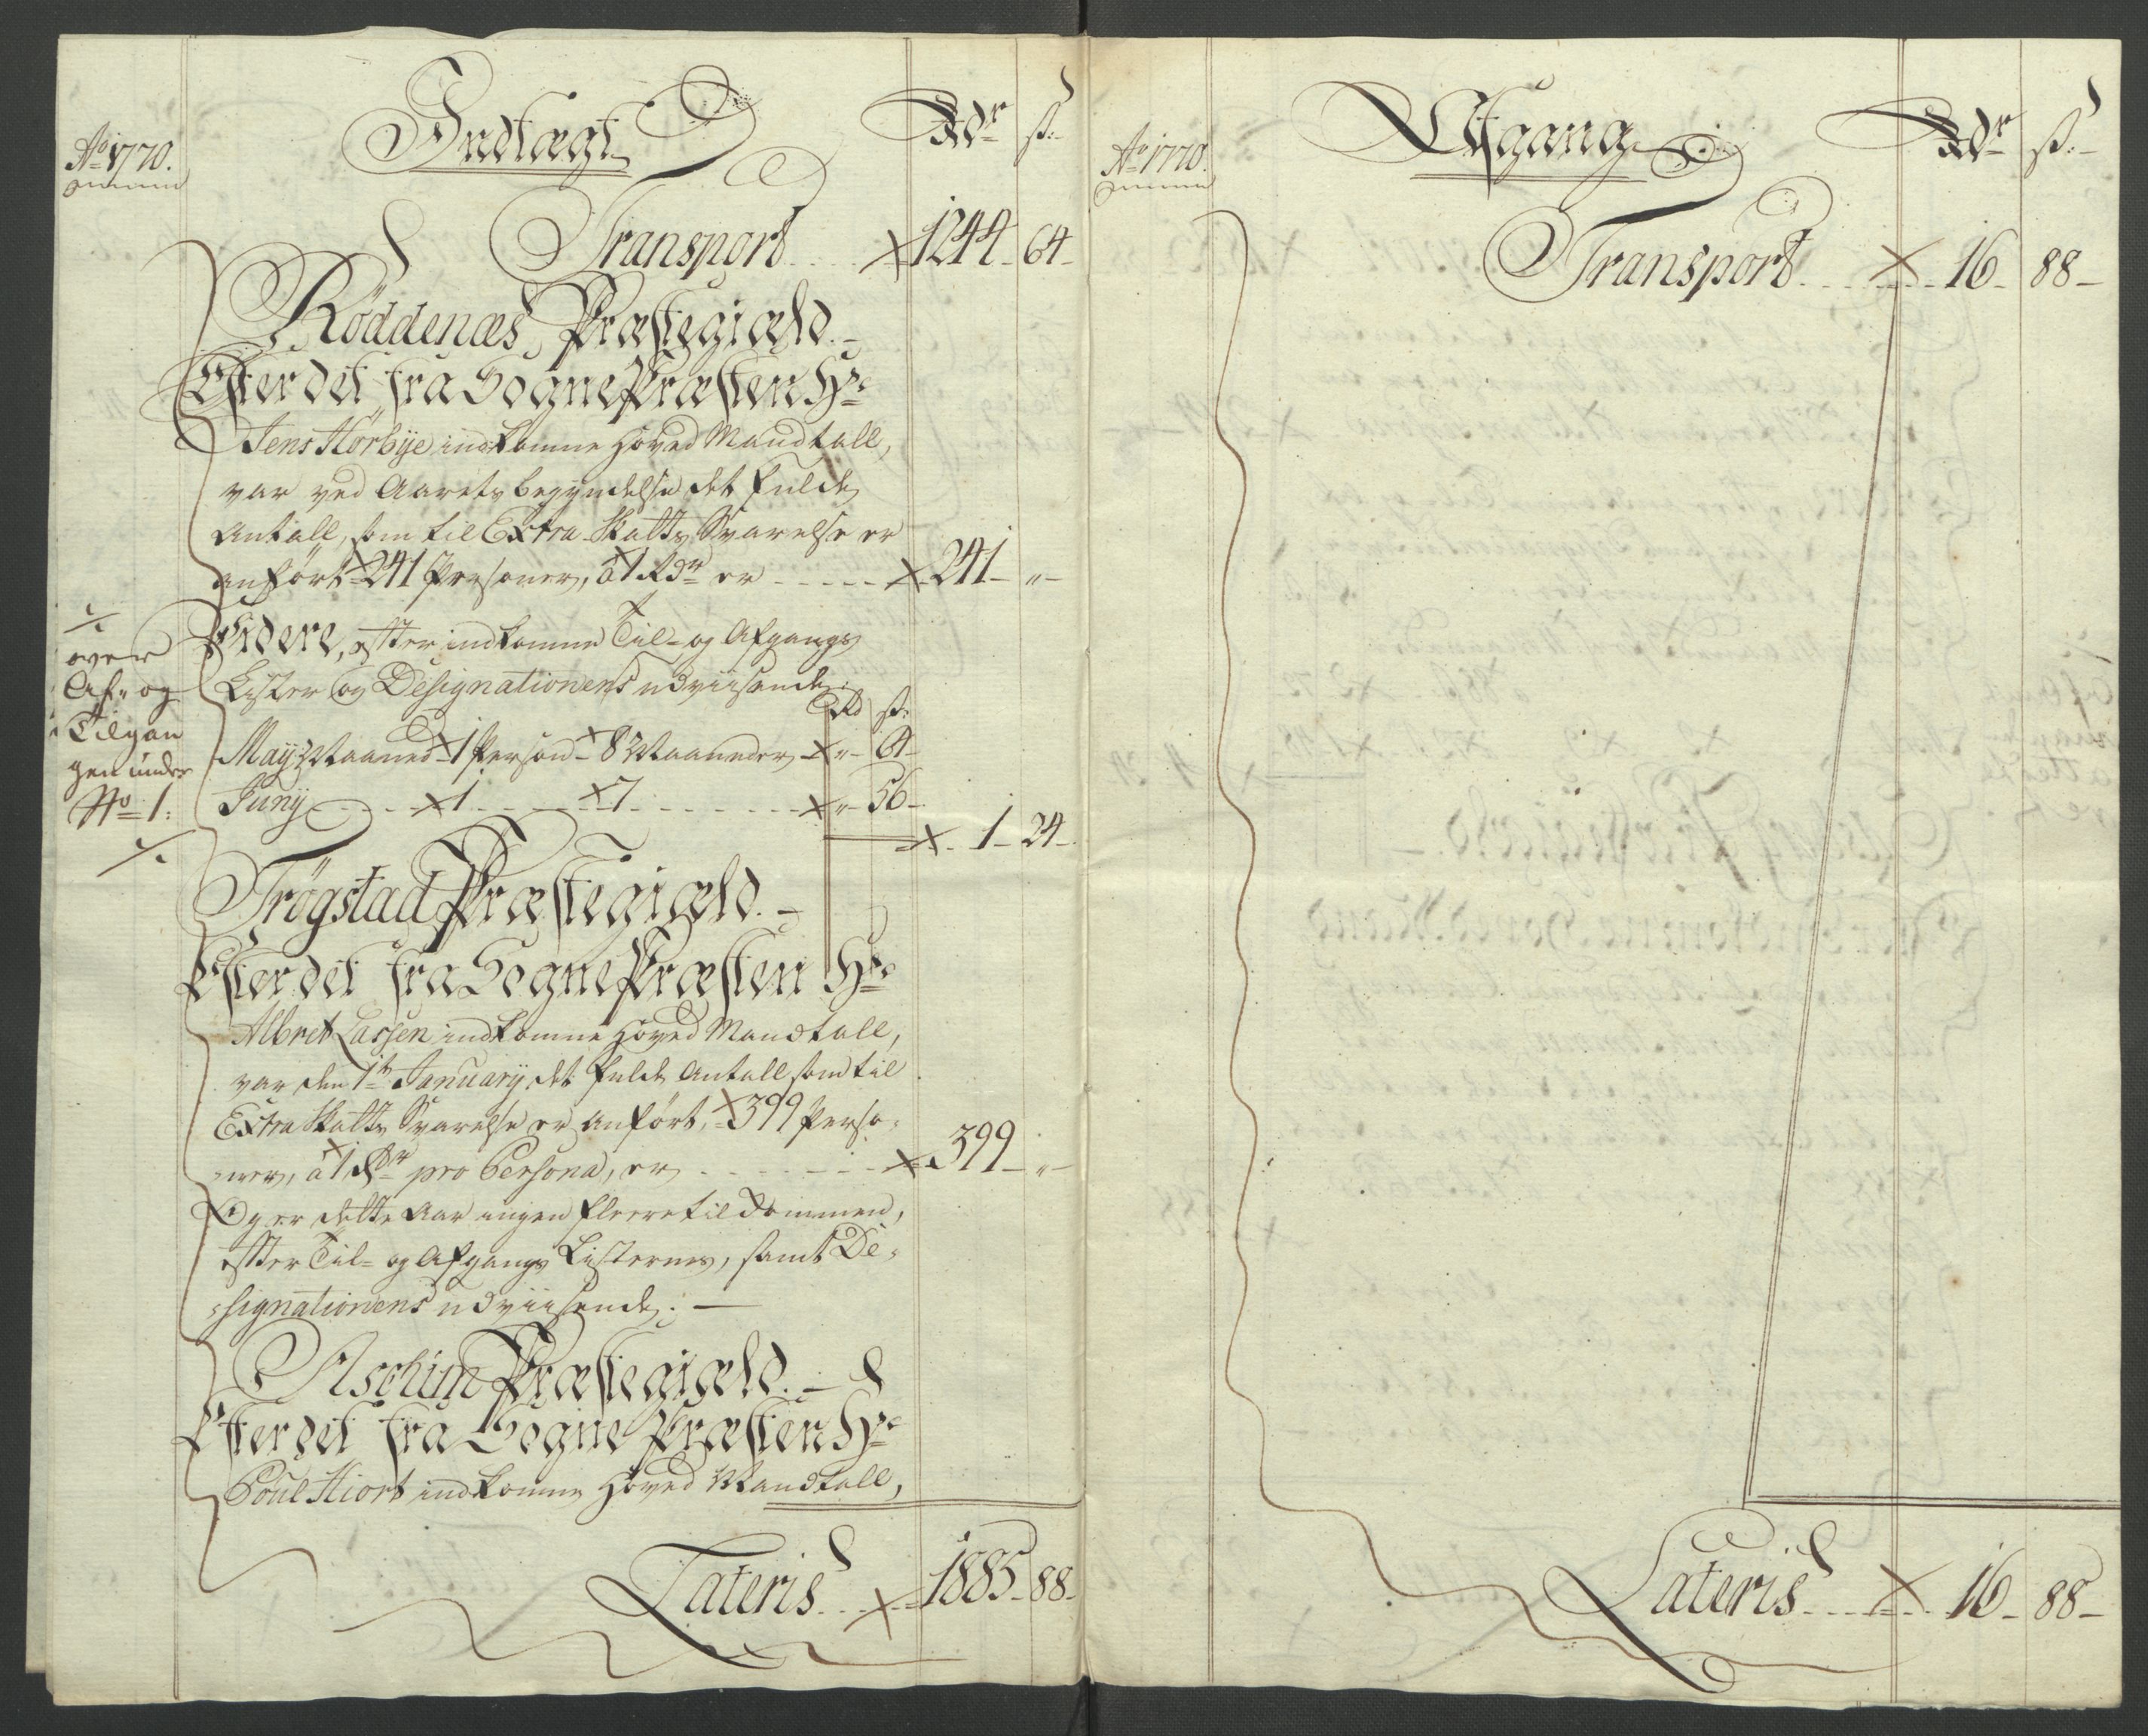 Ao 1770.
Indtægt
Rdr ß:
Transport . . . . 1244 - 64 -
Röddenæs Præstegiæld. -
Efter det fra SognePræsten Hr:
Jens Hörbye indkomne Hoved Mandtall,
var ved Aarets begyndelse det fulde
Antall, som til Extra Skatts Svarelse er
anfört 241 Personer, á 1 Rdr er - - - - - 241 - " -
Videre, efter indkomne Til- og Afgangs
Lister og Designationens udviisende:
Rd ß:
May Maaned - 1 Person - 8 Maaneder - " - 64 -
Juny - - - - 1 - - - - 7 - - - - - - - " - 56 -
- 1 - 24 -
·/.
over
Af- og
Tilgan
gen under
No 1:
·/.
Trögstad Præstegiæld. -
Efter det fra SognePræsten Hr:
Albret Lassen indkomne Hoved Mandtall,
var den 1te January det fulde Antall som til
Extra Skatts Svarelse er anfört, - 399 Perso-
-ner, á 1 Rdr pro Persona, er - - - - - - - 399 - " -
Og er dette Aar ingen fleere tilkommen,
efter Til- og Afgangs Listernes, samt De-
-signationens udviisende. —
Aschim Præstegiæld. -
Efter det fra Sogne Præsten Hr:
Poul Hiort indkomne Hoved Mandtall,
Lateris . . . . 1885 - 88 -
Ao 1770.
Udgang
Rdr ß:
Transport . . . . . 16 - 88 -
Lateris . . . . . 16 - 88 -